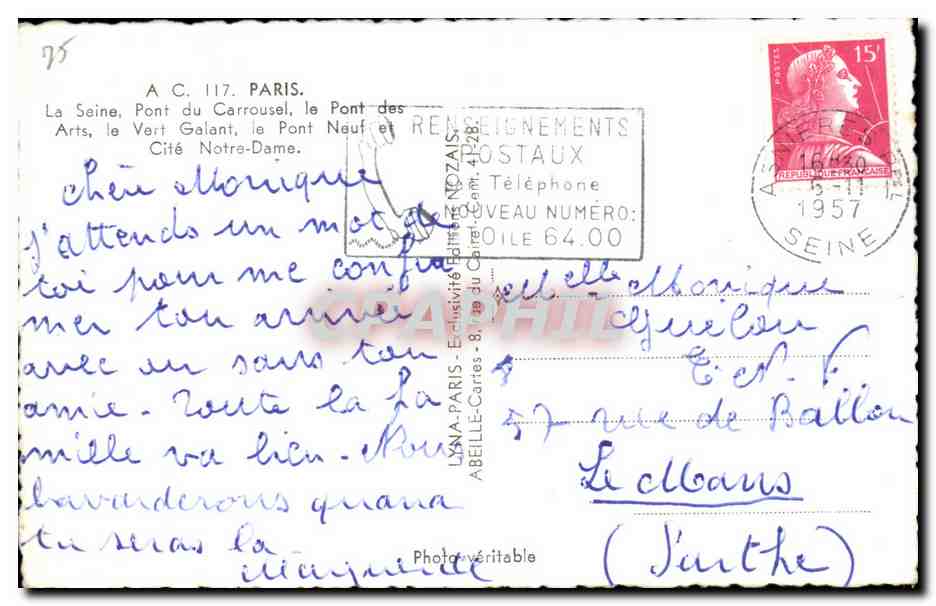 75
A C. 117. PARIS.
La Seine, Pont du Carrousel, le Pont des
Arts, le Vert Galant, le Pont Neuf et
Cité Notre-Dame.
RENSEIGNEMENTS
POSTAUX
Téléphone
NOUVEAU NUMÉRO:
OILE 64.00
POSTES
15F
REPUBLIQUE FRANÇAISE
ASNIERES
16H
5-11
1957
SEINE
chère Monique
j'attends un mot de
toi pour me confir
mer ton arrivée
avec ou sans ton
amie. Toute la fa
mille va bien. Nous
bavarderons quand
tu seras là.
Marguerite
LYNA-PARIS - Exclusivité Editions NOZAIS.
ABEILLE-Cartes - 8, rue du Caire - Cent. 41-28.
CPAPHIL
Melle Monique
57 rue de Ballon
Le Mans
(Sarthe)
Photo véritable